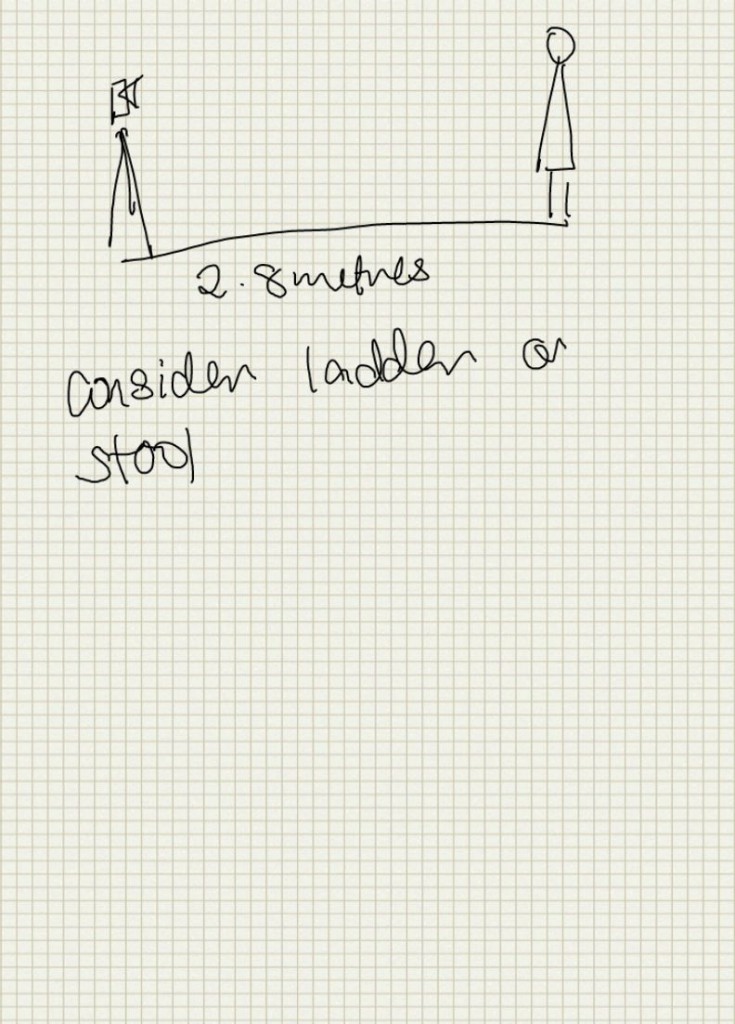 2.8 metres
consider ladder or
stool